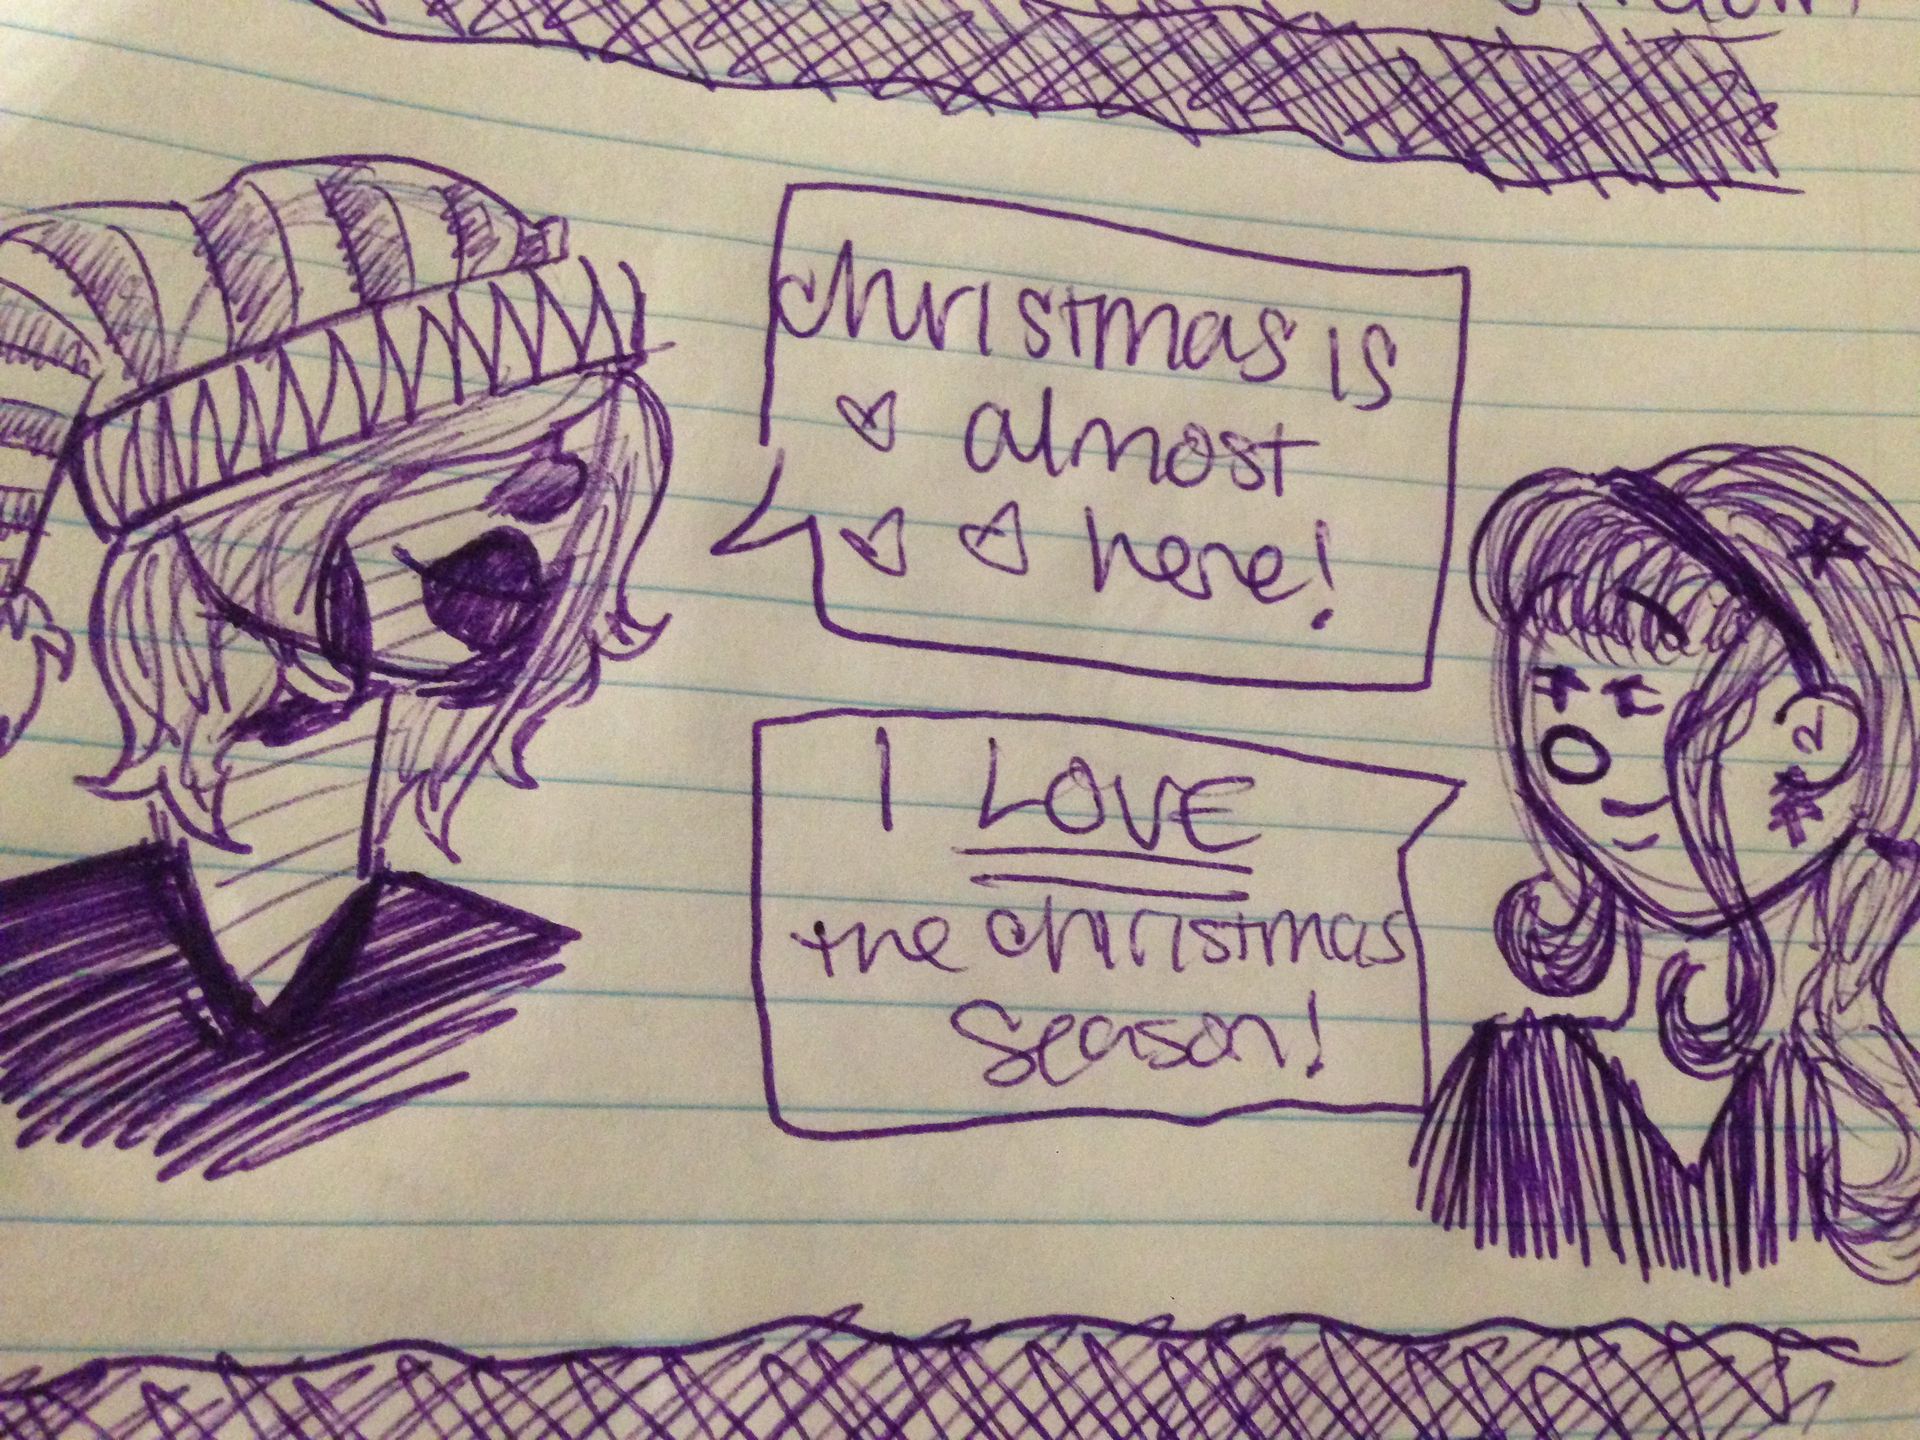 christmas is
almost
here!
I LOVE
the christmas
season!